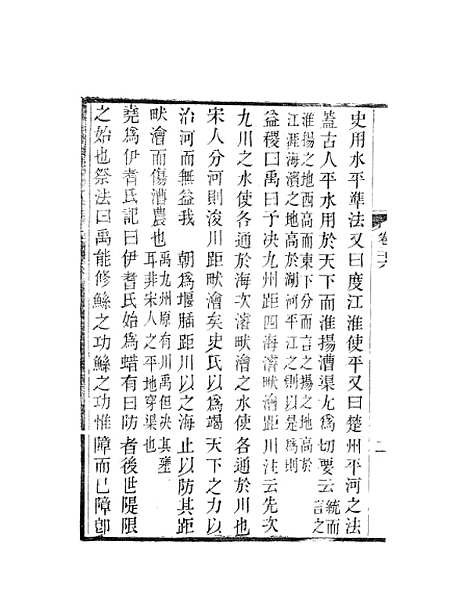 史用水平準法又曰度江淮使平又曰楚州平河之法
蓋古人平水用於天下而淮揚漕渠尤為切要云統而言之
淮揚之地西高而東下分而言之揚之地高於
江涯海濱之地高於湖河平江之則以是為則
益稷曰禹曰予决九州距四海濬畎澮距川注云先次
九川之水使各通於海次濬畎澮之水使各通於川也
宋人分河則浚川距畎澮矣史氏以為竭天下之力以
治河而無益我朝為堰腦距川以之海止以防其距
畎澮而傷漕農也禹九州原有川禹但决其壅
耳非宋人之平地穿渠也
堯為伊耆氏記曰伊耆氏始為蜡有曰防者後世隄限
之始也祭法曰禹能修鯀之功鯀之功惟障而已障卽
卷六
二